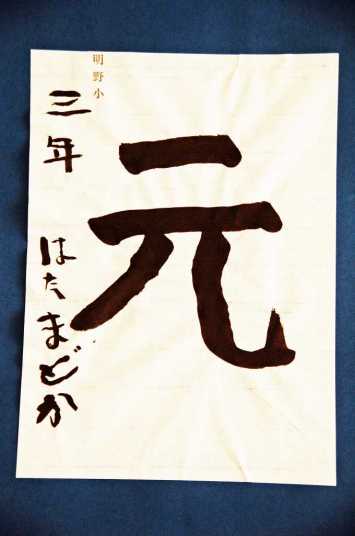 元
明野小
三年 はたまどか